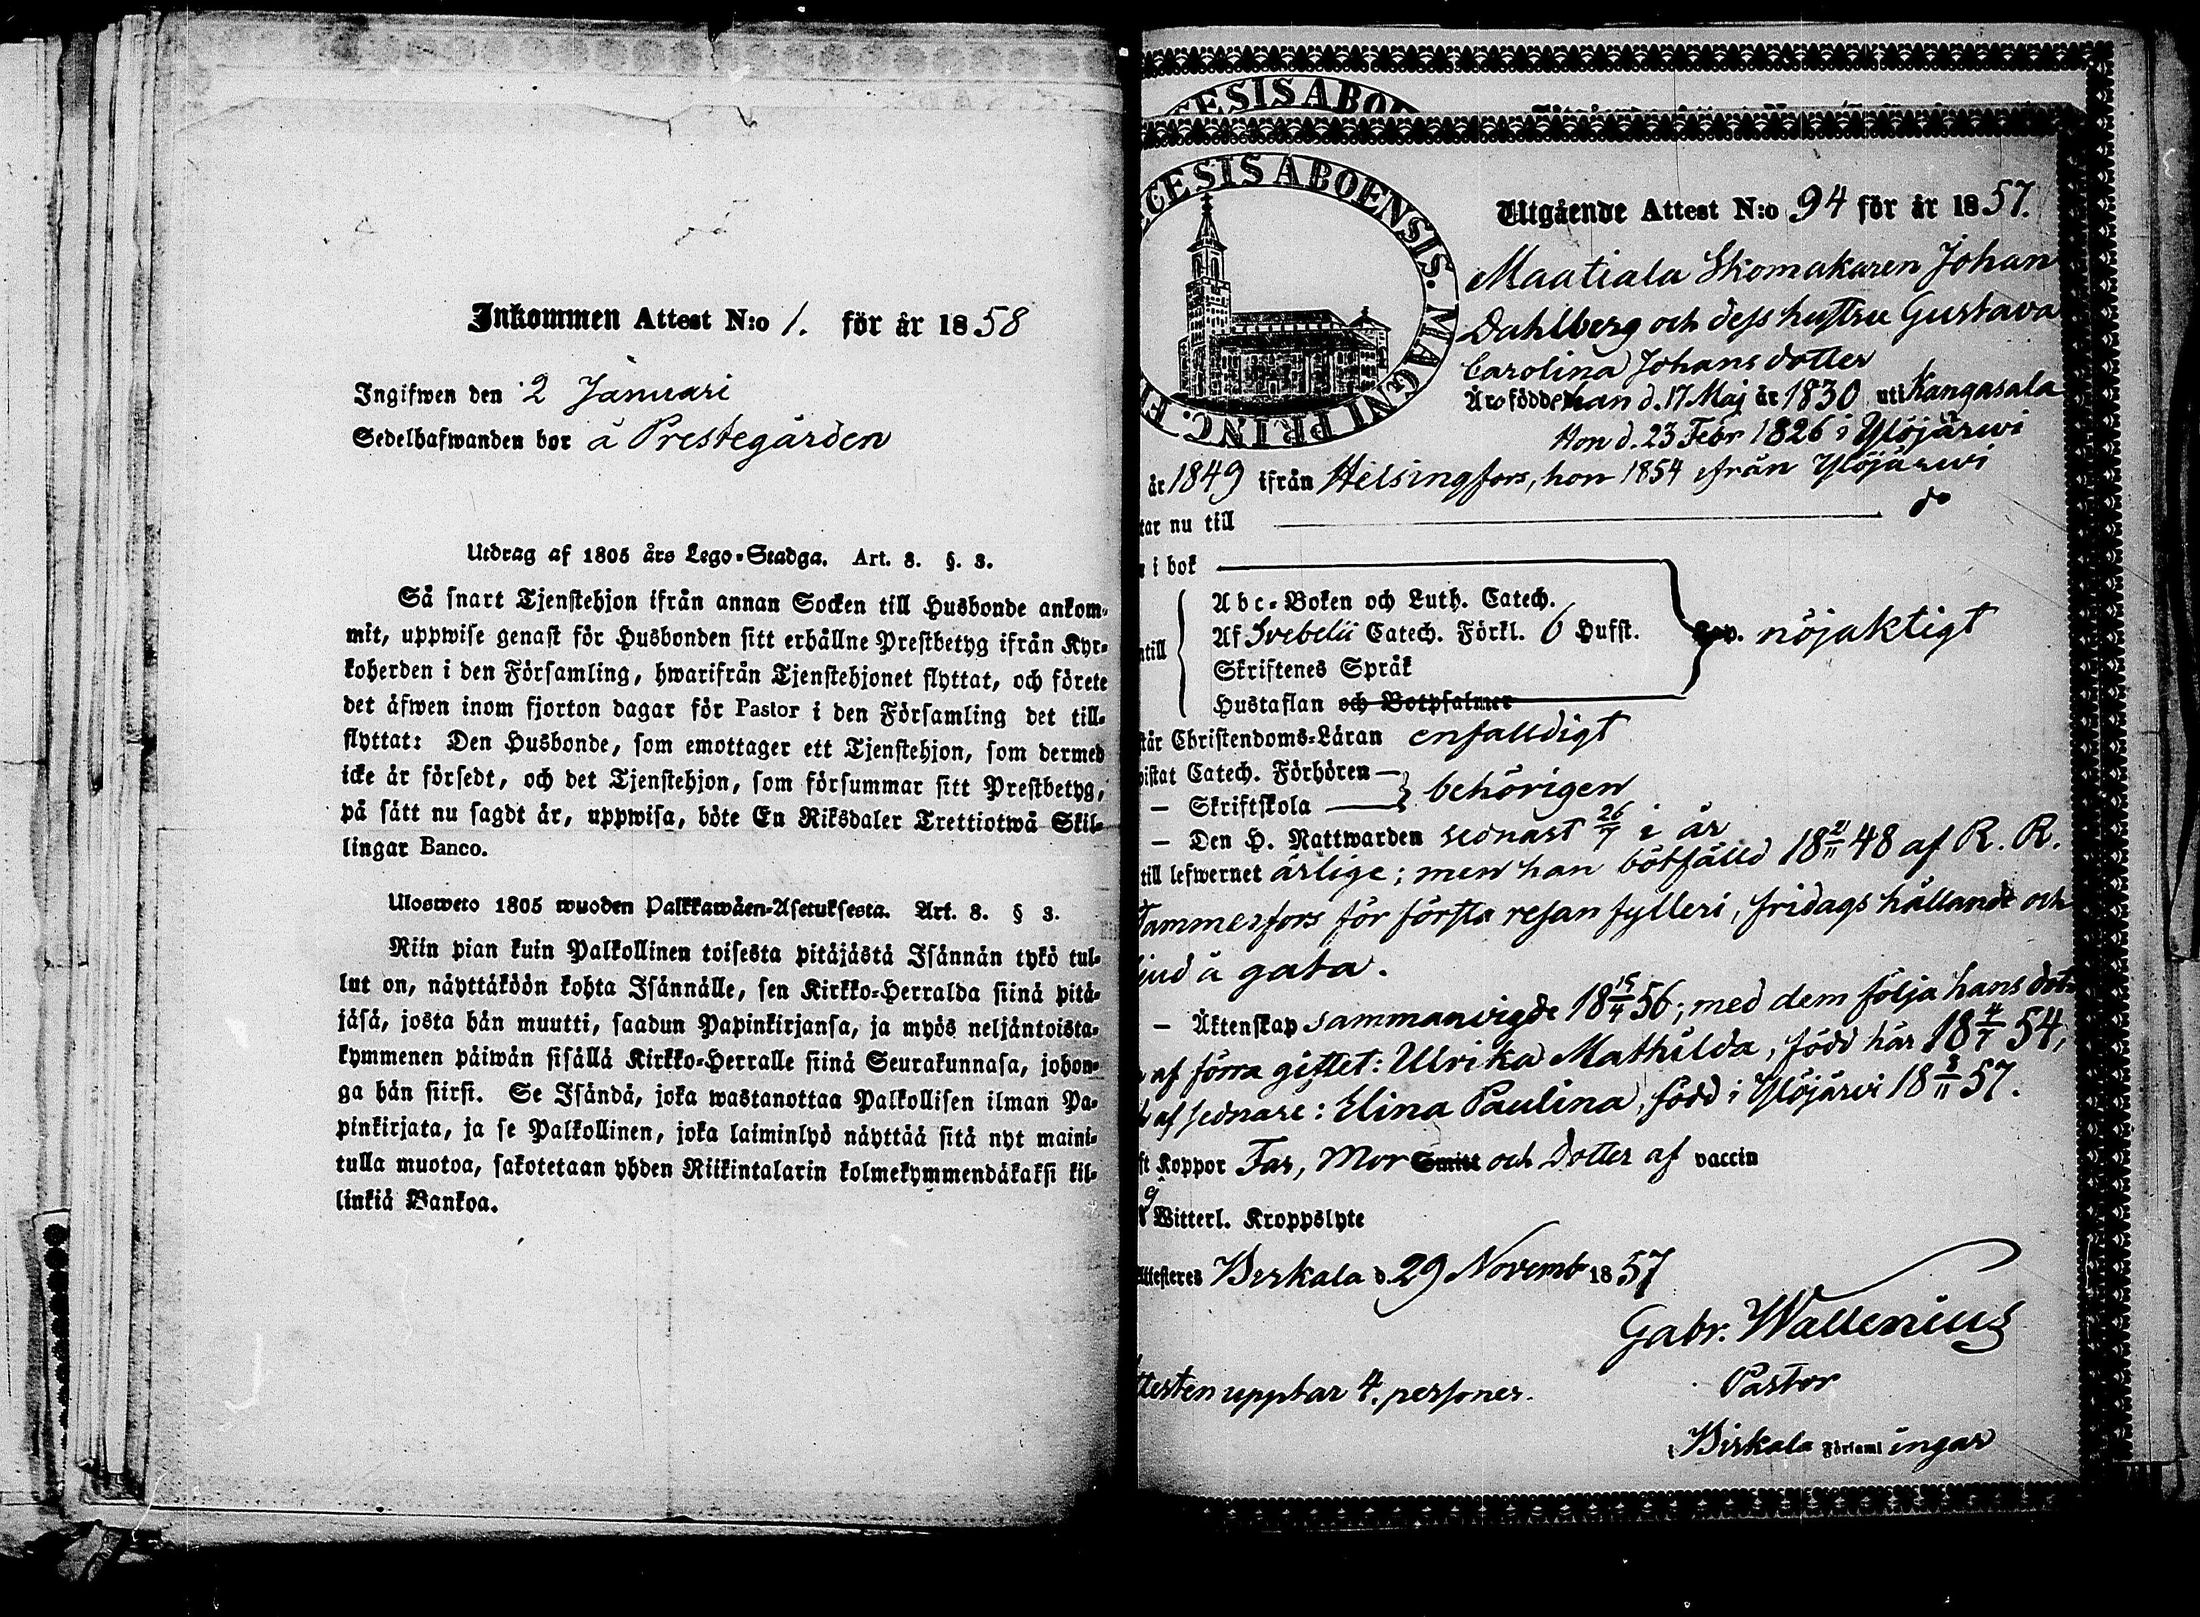 Inkommen Attest N:o 1. för år 1858
Ingifwen den 2 Januari
Sedelhafwanden bor å Prestegården
Utdrag af 1805 års Lego-Stadga. Art. 8. §. 3.
Så snart Tjenstehjon ifrån annan Socken till Husbonde ankom-
mit, uppwise genast för Husbonden sitt erhållne Prestbetyg ifrån Kyr-
koherden i den Församling, hwarifrån Tjenstehjonet flyttat, och förete
det äfwen inom fjorton dagar för Pastor i den Församling det till-
flyttat: Den Husbonde, som emottager ett Tjenstehjon, som dermed
icke är försedt, och det Tjenstehjon, som försummar sitt Prestbetyg,
på sätt nu sagdt är, uppwisa, böte En Riksdaler Trettiotwå Skil-
lingar Banco.
Ulosweto 1805 wuoden Palkkawäen-Asetuksesta. Art. 8. § 3.
Niin pian kuin Palkollinen toisesta pitäjästä Isännän tykö tul-
lut on, näyttäköön kohta Isännälle, sen Kirkko-Herralda siinä pitä-
jäsä, josta hän muutti, saadun Papinkirjansa, ja myös neljäntoista-
kymmenen päiwän sisällä Kirkko-Herralle siinä Seurakunnasa, johon-
ga hän siirsi. Se Isändä, joka wastanottaa Palkollisen ilman Pa-
pinkirjata, ja se Palkollinen, joka laiminlyö näyttää sitä nyt maini-
tulla muotoa, sakotetaan yhden Riikintalarin kolmekymmendäkaksi kil-
linkiä Bankoa.
CESIS ABOE
CESIS ABOENSIS. MAGNI PRINC. F
Utgående Attest N:o 94 för år 1857.
Maatiala Skomakaren Johan
Dahlberg och dess hustru Gustava
Carolina Johansdotter
Äro födde, han d. 17 Maj år 1830 uti Kangasala
Hon d. 23 Febr 1826 i Ylöjärwi
år 1849 ifrån Helsingfors, hon 1854 ifrån Ylöjärwi
tar nu till do
i bok
Abc-Boken och Luth. Catech.
till Af Svebelii Catech. Förkl. 6 Hufst. nöjaktigt
Skriftenes Språk
Hustaflan och Botpsalmer
står Christendoms-Läran enfalldigt
wistat Catech. Förhören
— Skriftskola behörigen
— Den H. Nattwarden sednast 26/7 i år
till lefwernet ärlige; men han bötfälld 18 11 48 af R. R.
Tammerfors för första resan fylleri, fridags hållande och
ljud å gata.
— Äktenskap sammanvigde 18 15/11 56; med dem följa hans dot-
af förra giftet: Ulrika Mathilda, född här 18 4/7 54,
af sednare: Elina Paulina, född i Ylöjärvi 18 3/11 57.
ft Koppor Far, Mor Smitt och Dotter af vaccin
Witterl. Kroppslyte
Attesteres Birkala d. 29 Novemb 1857
Gabr. Wallenius
Pastor
ttesten upptar 4. personer.
i Birkala Församlingar